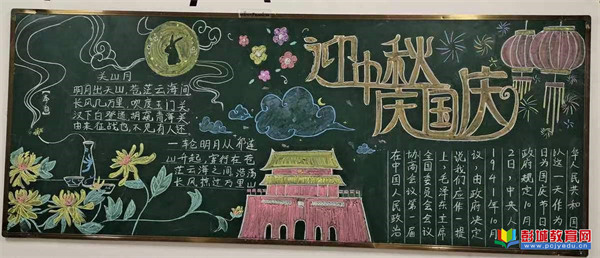 迎中秋
庆国庆
关山月
【李白】
明月出天山,苍茫云海间
长风几万里,吹度玉门关
汉下白登道,胡窥青海湾
由来征战地,不见有人还
一轮明月从祁连
山升起,穿行在苍
茫云海之间,浩荡
长风掠过万里山
在中国人民政治
协商会议第一届
全国委员会会议
上,毛泽东主席
说我们应作一提
议由政府决定
1949年10月
2日,中央人
政府规定10月
日为国庆节日
以这一天作为
华人民共和国
彭城教育网
www.pcjyedu.cn